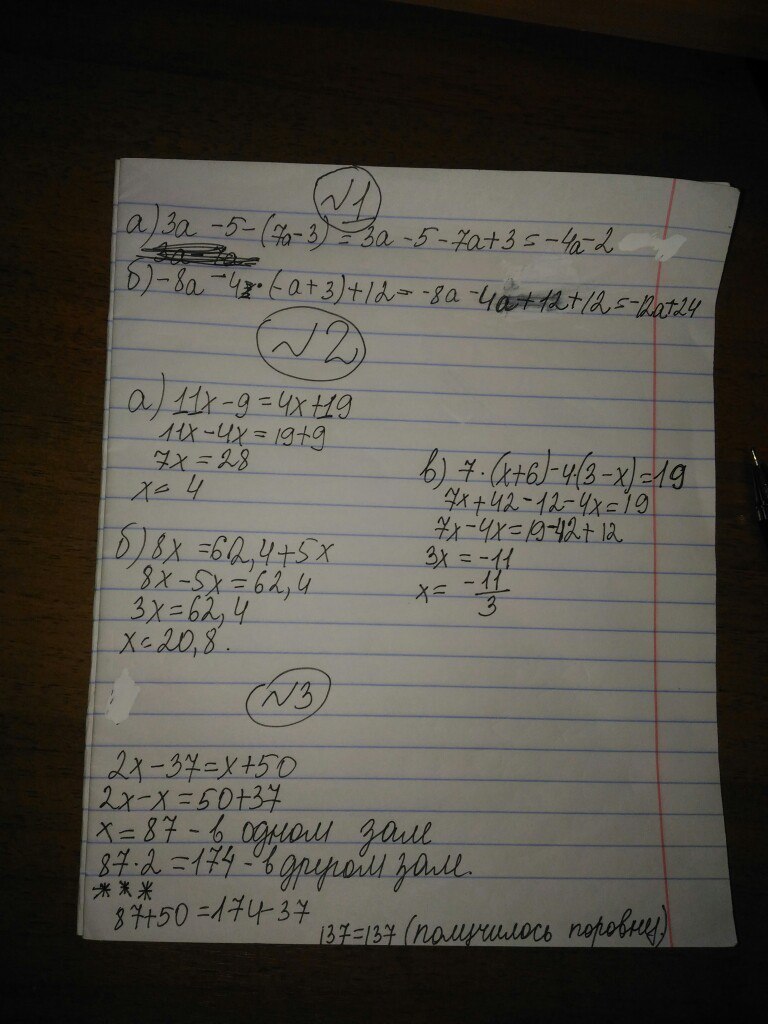 №1
а) 3а - 5 - (7а - 3) = 3а - 5 - 7а + 3 = -4а - 2
б) -8а - 4 · (-а + 3) + 12 = -8а - 4а + 12 + 12 = -12а + 24
№2
а) 11х - 9 = 4х + 19
11х - 4х = 19 + 9
7х = 28
х = 4
б) 8х = 62,4 + 5х
8х - 5х = 62,4
3х = 62,4
х = 20,8.
в) 7 · (х + 6) - 4 (3 - х) = 19
7х + 42 - 12 - 4х = 19
7х - 4х = 19 - 42 + 12
3х = -11
х = -11/3
№3
2х - 37 = х + 50
2х - х = 50 + 37
х = 87 - в одном зале
87 · 2 = 174 - в другом зале.
***
87 + 50 = 174 - 37
137 = 137 (получилось поровну)